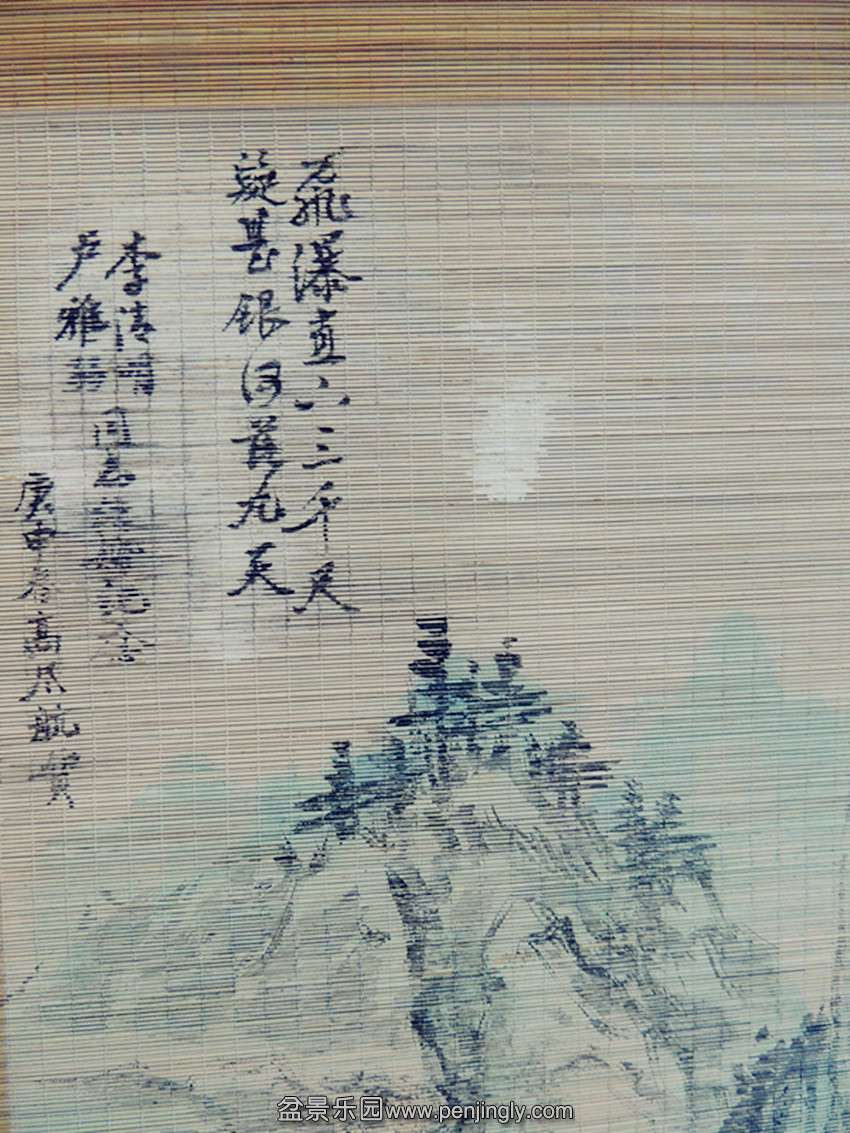 飛瀑直下三千尺
疑甚银河落九天
李清
卢雅
同志结婚纪念
庚申春高 航贺
盆景乐园www.penjingly.com